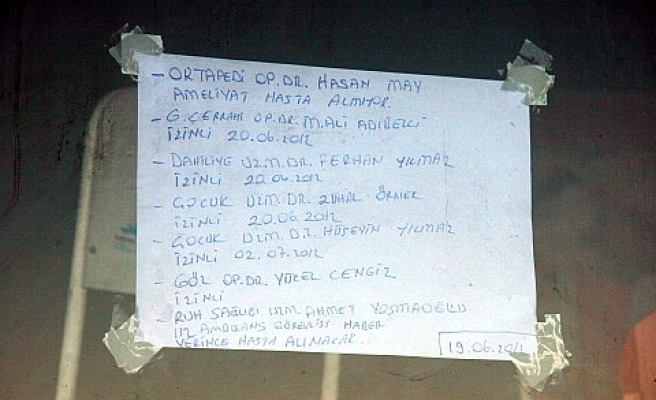 - ORTAPEDİ OP.DR. HASAN MAY
AMELİYAT HASTA ALMIYOR.
- G.CERRAHİ OP.DR.M.ALİ ADIBELLİ
İZİNLİ 20.06.2012
- DAHİLİYE UZM.DR. FERHAN YILMAZ
İZİNLİ 20.06.2012
- ÇOCUK UZM.DR. ZUHAL ÖRNEK
İZİNLİ 20.06.2012
- ÇOCUK UZM.DR. HÜSEYİN YILMAZ
İZİNLİ 02.07.2012
- GÖZ OP.DR. YÜCEL CENGİZ
İZİNLİ
- RUH SAĞLIĞI UZM. AHMET YOSMAOĞLU
112 AMBULANS GÖREVLİSİ HABER
VERİNCE HASTA ALINACAK.
19.06.2012